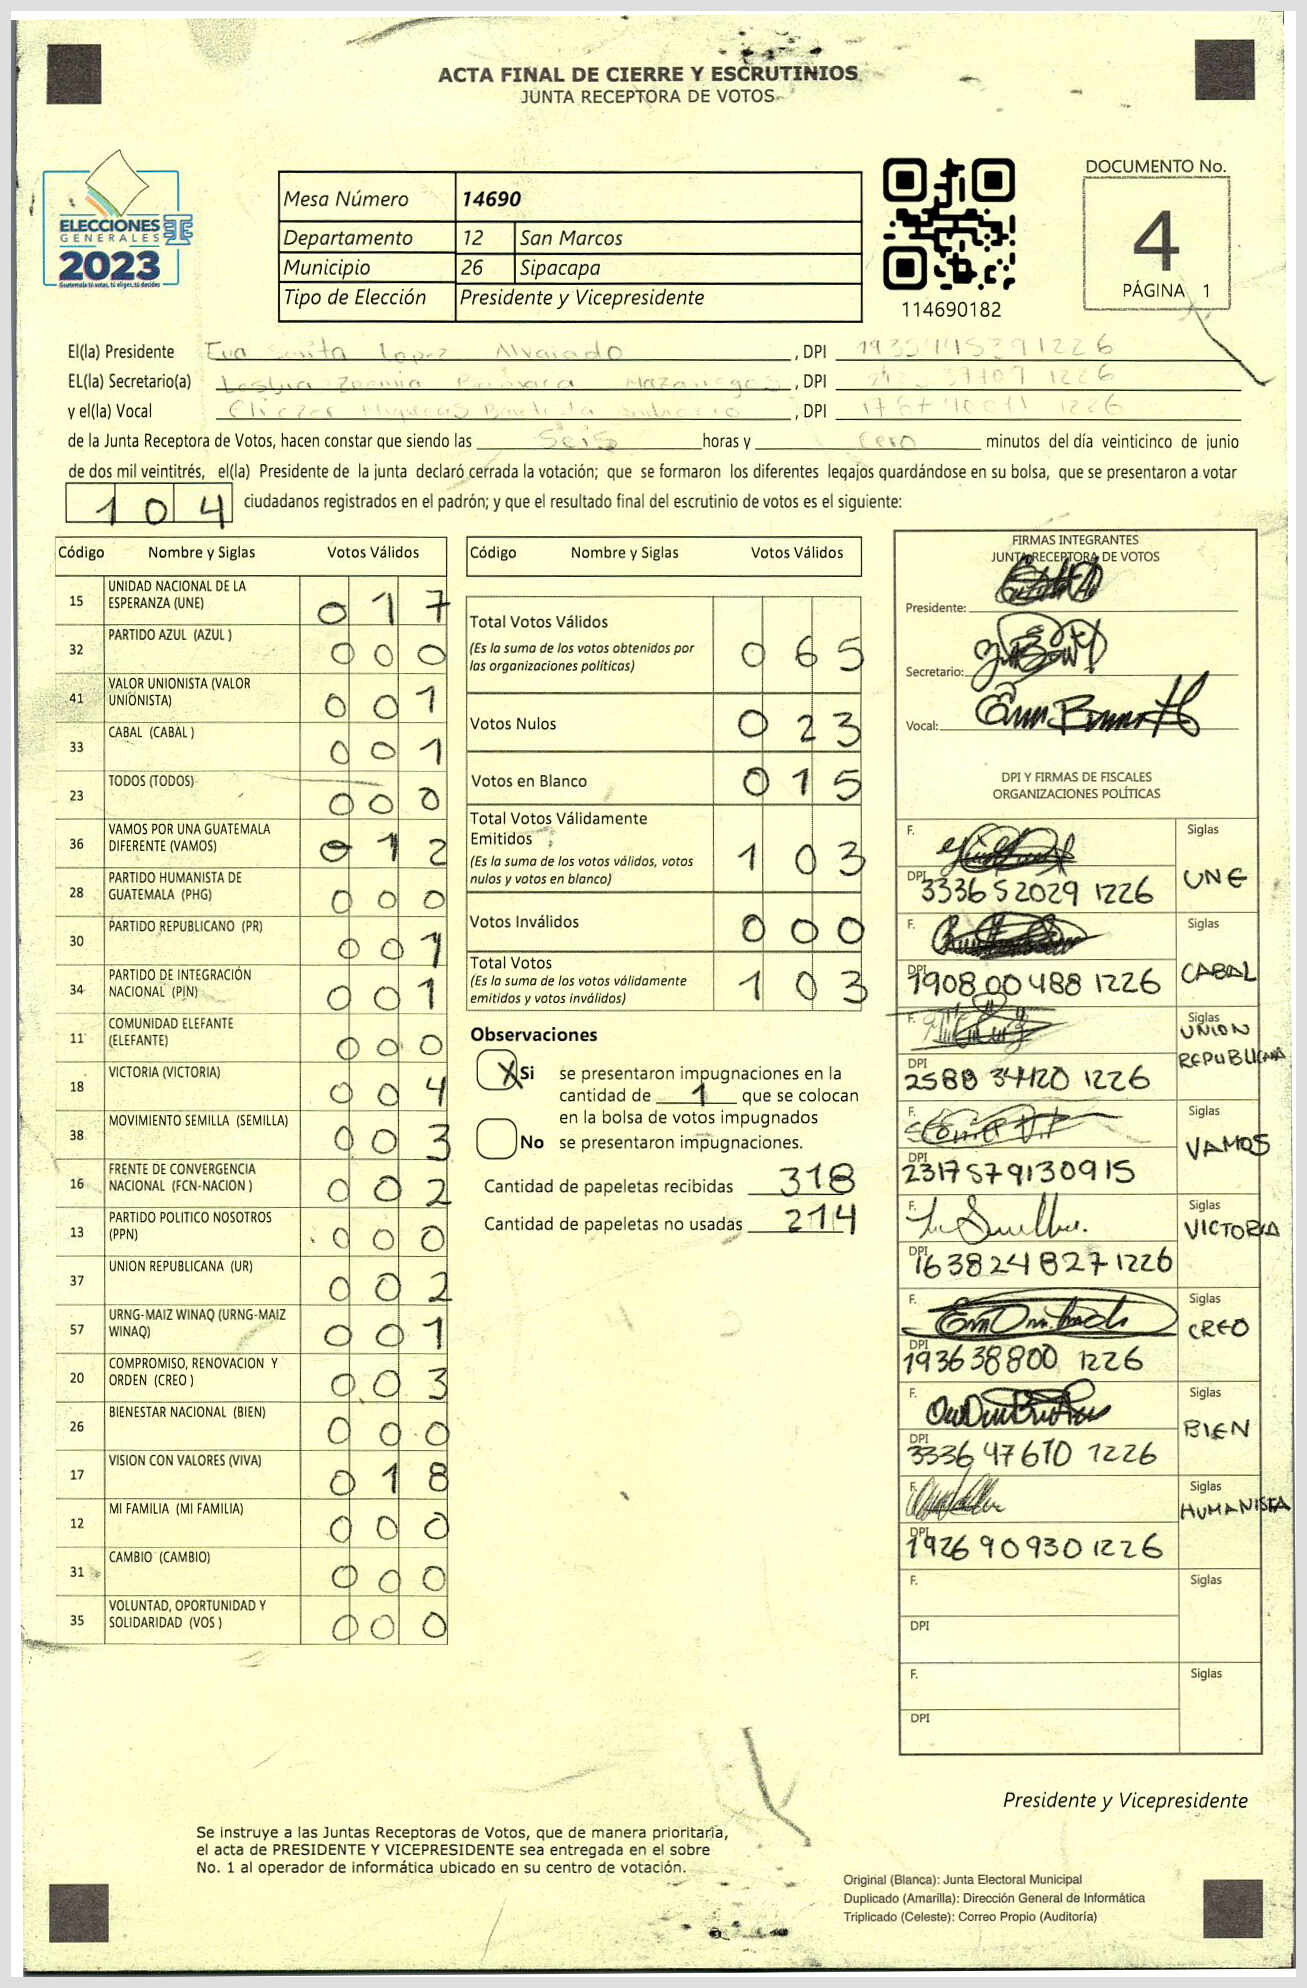 ACTA FINAL DE CIERRE Y ESCRUTINIOS
JUNTA RECEPTORA DE VOTOS
ELECCIONES
GENERALES
2023
Guatemala tú votas, tú eliges, tú decides
Mesa Número 14690
Departamento 12 San Marcos
Municipio 26 Sipacapa
Tipo de Elección Presidente y Vicepresidente
114690182
DOCUMENTO No.
4
PÁGINA 1
El(la) Presidente Lopez Alvarado , DPI
EL(la) Secretario(a) , DPI 1226
y el(la) Vocal , DPI 1226
de la Junta Receptora de Votos, hacen constar que siendo las seis horas y cero minutos del día veinticinco de junio
de dos mil veintitrés, el(la) Presidente de la junta declaró cerrada la votación; que se formaron los diferentes legajos guardándose en su bolsa, que se presentaron a votar
104 ciudadanos registrados en el padrón; y que el resultado final del escrutinio de votos es el siguiente:
Código Nombre y Siglas Votos Válidos
15 UNIDAD NACIONAL DE LA ESPERANZA (UNE) 017
32 PARTIDO AZUL (AZUL ) 000
41 VALOR UNIONISTA (VALOR UNIONISTA) 001
33 CABAL (CABAL ) 001
23 TODOS (TODOS) 000
36 VAMOS POR UNA GUATEMALA DIFERENTE (VAMOS) 012
28 PARTIDO HUMANISTA DE GUATEMALA (PHG) 000
30 PARTIDO REPUBLICANO (PR) 001
34 PARTIDO DE INTEGRACIÓN NACIONAL (PIN) 001
11 COMUNIDAD ELEFANTE (ELEFANTE) 000
18 VICTORIA (VICTORIA) 004
38 MOVIMIENTO SEMILLA (SEMILLA) 003
16 FRENTE DE CONVERGENCIA NACIONAL (FCN-NACION ) 002
13 PARTIDO POLITICO NOSOTROS (PPN) 000
37 UNION REPUBLICANA (UR) 002
57 URNG-MAIZ WINAQ (URNG-MAIZ WINAQ) 001
20 COMPROMISO, RENOVACION Y ORDEN (CREO ) 003
26 BIENESTAR NACIONAL (BIEN) 000
17 VISION CON VALORES (VIVA) 018
12 MI FAMILIA (MI FAMILIA) 000
31 CAMBIO (CAMBIO) 000
35 VOLUNTAD, OPORTUNIDAD Y SOLIDARIDAD (VOS ) 000
Código Nombre y Siglas Votos Válidos
Total Votos Válidos 065
(Es la suma de los votos obtenidos por
las organizaciones políticas)
Votos Nulos 023
Votos en Blanco 015
Total Votos Válidamente
Emitidos 103
(Es la suma de los votos válidos, votos
nulos y votos en blanco)
Votos Inválidos 000
Total Votos 103
(Es la suma de los votos válidamente
emitidos y votos inválidos)
Observaciones
X Si se presentaron impugnaciones en la
cantidad de 1 que se colocan
en la bolsa de votos impugnados
No se presentaron impugnaciones.
Cantidad de papeletas recibidas 318
Cantidad de papeletas no usadas 214
FIRMAS INTEGRANTES
JUNTA RECEPTORA DE VOTOS
Presidente:
Secretario:
Vocal:
DPI Y FIRMAS DE FISCALES
ORGANIZACIONES POLÍTICAS
F. Siglas
DPI 33365 2029 1226 UNE
F. Siglas
DPI 1908 00 488 1226 CABAL
F. Siglas
UNION
REPUBLICANA
DPI 2588 34420 1226
F. Siglas
VAMOS
DPI 2317 579130915
F. Siglas
VICTORIA
DPI 1638248271226
F. Siglas
CREO
DPI 193638800 1226
F. Siglas
BIEN
DPI 3336 47610 1226
F. Siglas
HUMANISTA
DPI 1926 90930 1226
F. Siglas
DPI
F. Siglas
DPI
Presidente y Vicepresidente
Se instruye a las Juntas Receptoras de Votos, que de manera prioritaria,
el acta de PRESIDENTE Y VICEPRESIDENTE sea entregada en el sobre
No. 1 al operador de informática ubicado en su centro de votación.
Original (Blanca): Junta Electoral Municipal
Duplicado (Amarilla): Dirección General de Informática
Triplicado (Celeste): Correo Propio (Auditoría)